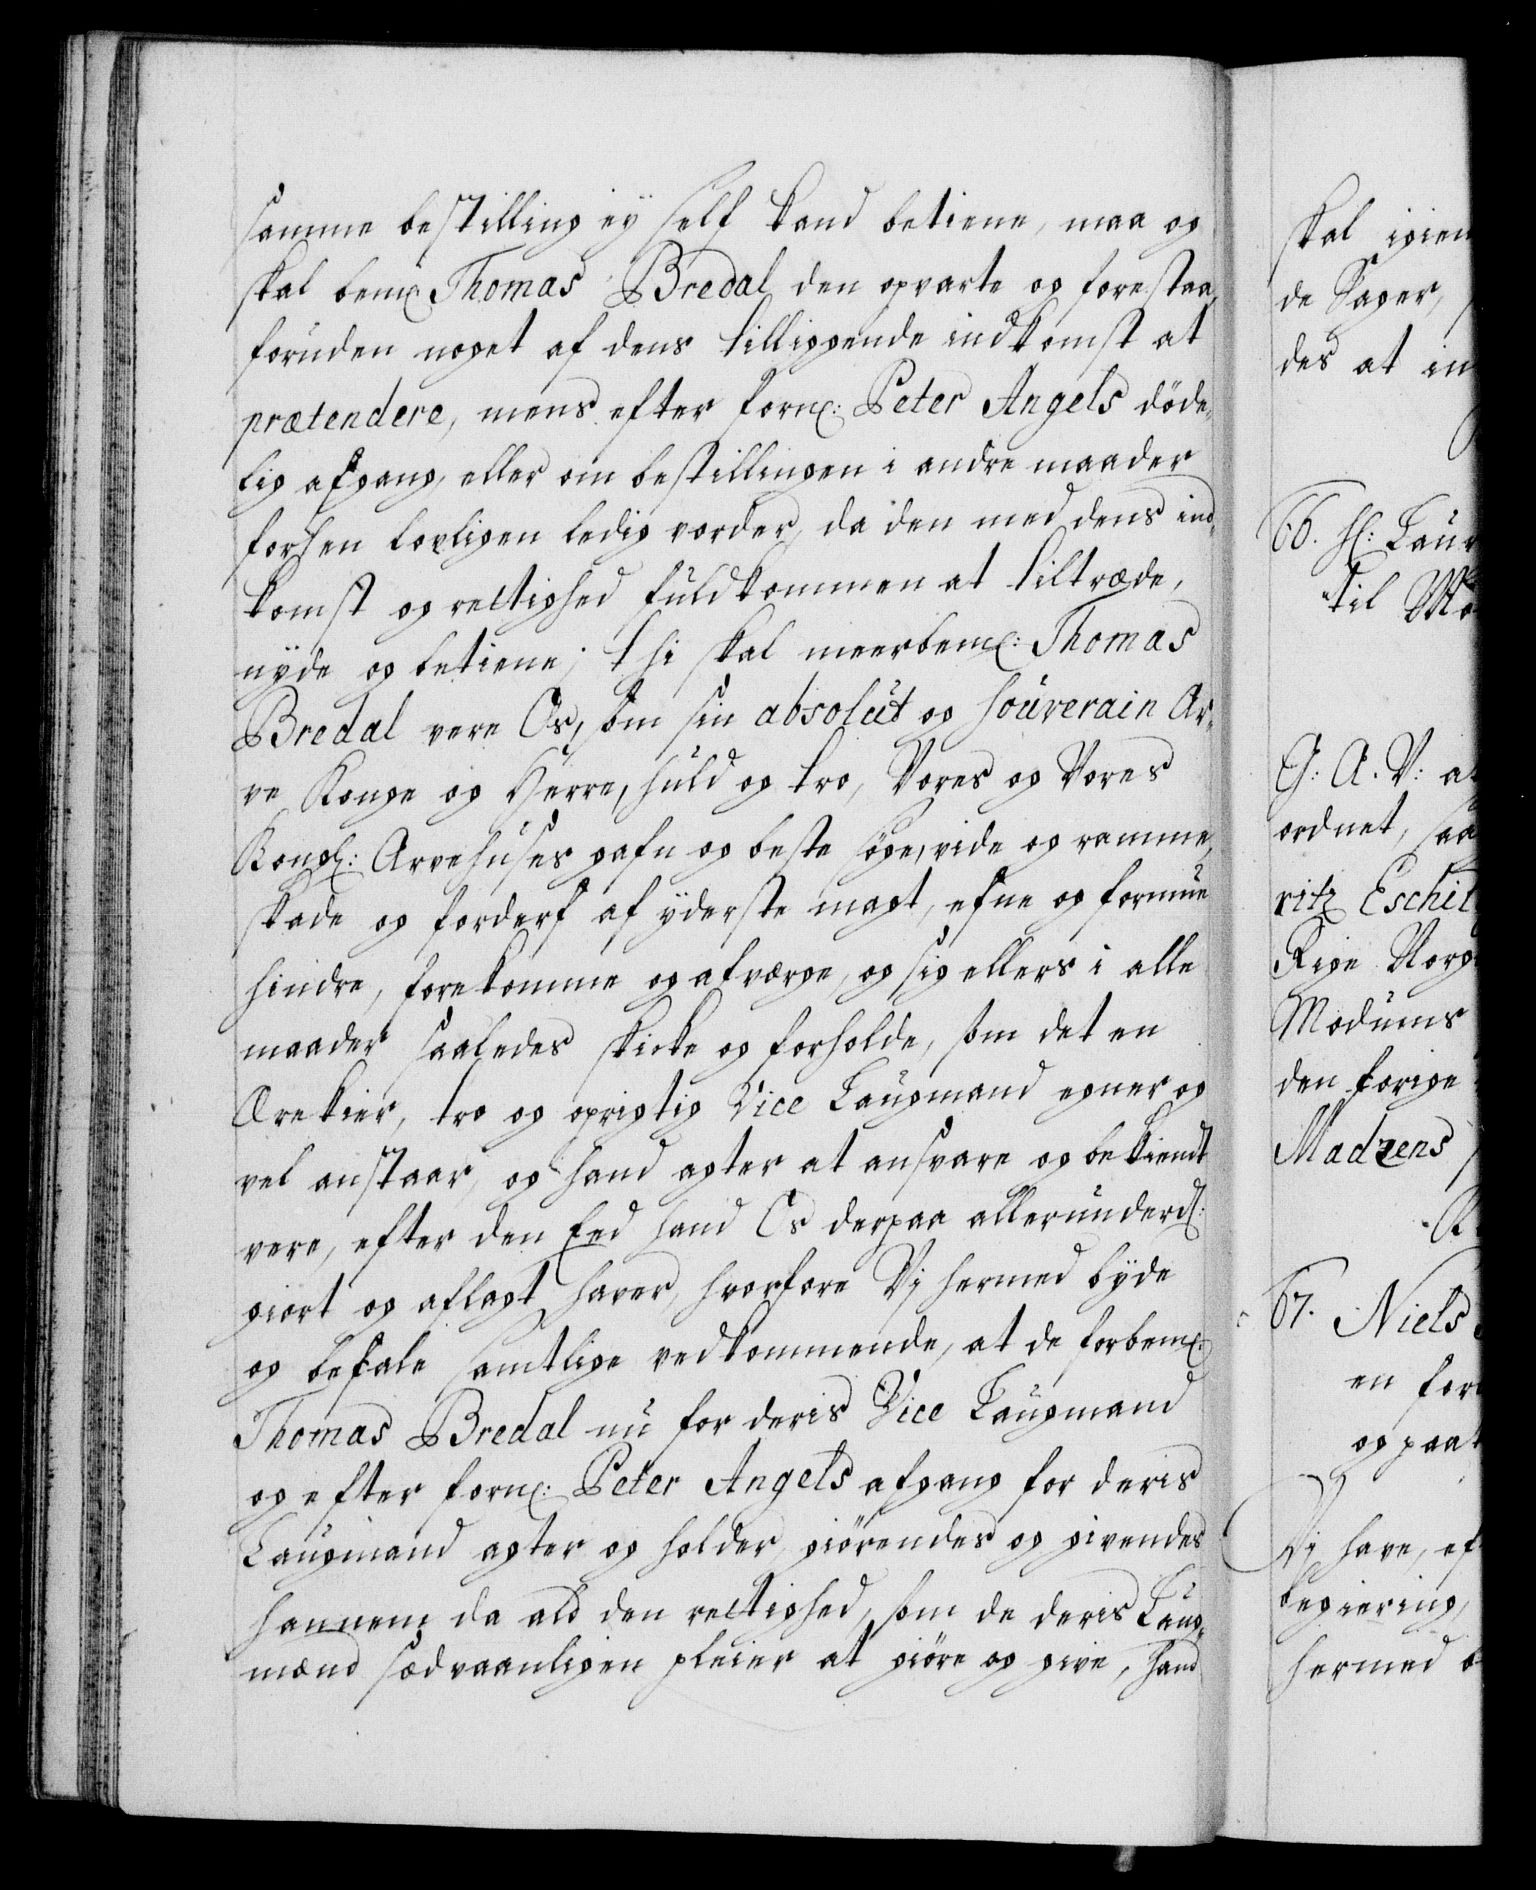 samme bestilling ej self kand betiene, maa og
skal bem: Thomas Bredal den opvarte og forestaa,
foruden noget af dens tilliggende indkomst at
prætendere, mens efter forn: Peter Angels döde,,
lig afgang, eller om bestillingen i andre maader
forhen lovligen ledig vorder, da den med dens ind,,
komst og rettighed fuldkommen at tiltræde,
nÿde og betiene; thi skal meerbem: Thomas
Bredal vere Os, som sin absolut og souverain Ar,,
ve Konge og Herre, huld og tro, Vores og Vores
Kongl: Arvehuses gafn og beste söge, vide og ramme,
skade og forderf af ÿderste magt, efne og formue
hindre, forekomme og afværge, og sig ellers i alle
maader saaledes skicke og forholde, som det en
Ærekier, tro og oprigtig Vice Laugmand egner og
vel anstaar, og hand agter at ansvare og bekiendt
vere, efter den Eed hand Os derpaa allerunderd:
giort og aflagt haver, hvorfore Vj hermed bÿde
og befale samtlige vedkommende, at de forbem:
Thomas Bredal nu for deris Vice Laugmand
og efter forn: Peter Angels afgang for deris
Laugmand agter og holder, giörendes og givendes
hannem da ald den rettighed, som de deris Laug,,
mænd sædvaanligen pleier at giöre og give, hand
skal igien
de Sager,
des at in
66. H: Laur
til Mo
G: A. V: a
ordnet, saa
ritz Eschil
Rige Norg
Modums
den forige
Madzens
67. Niels
en for
og paat
Vj have, ef
begiering,
hermed b